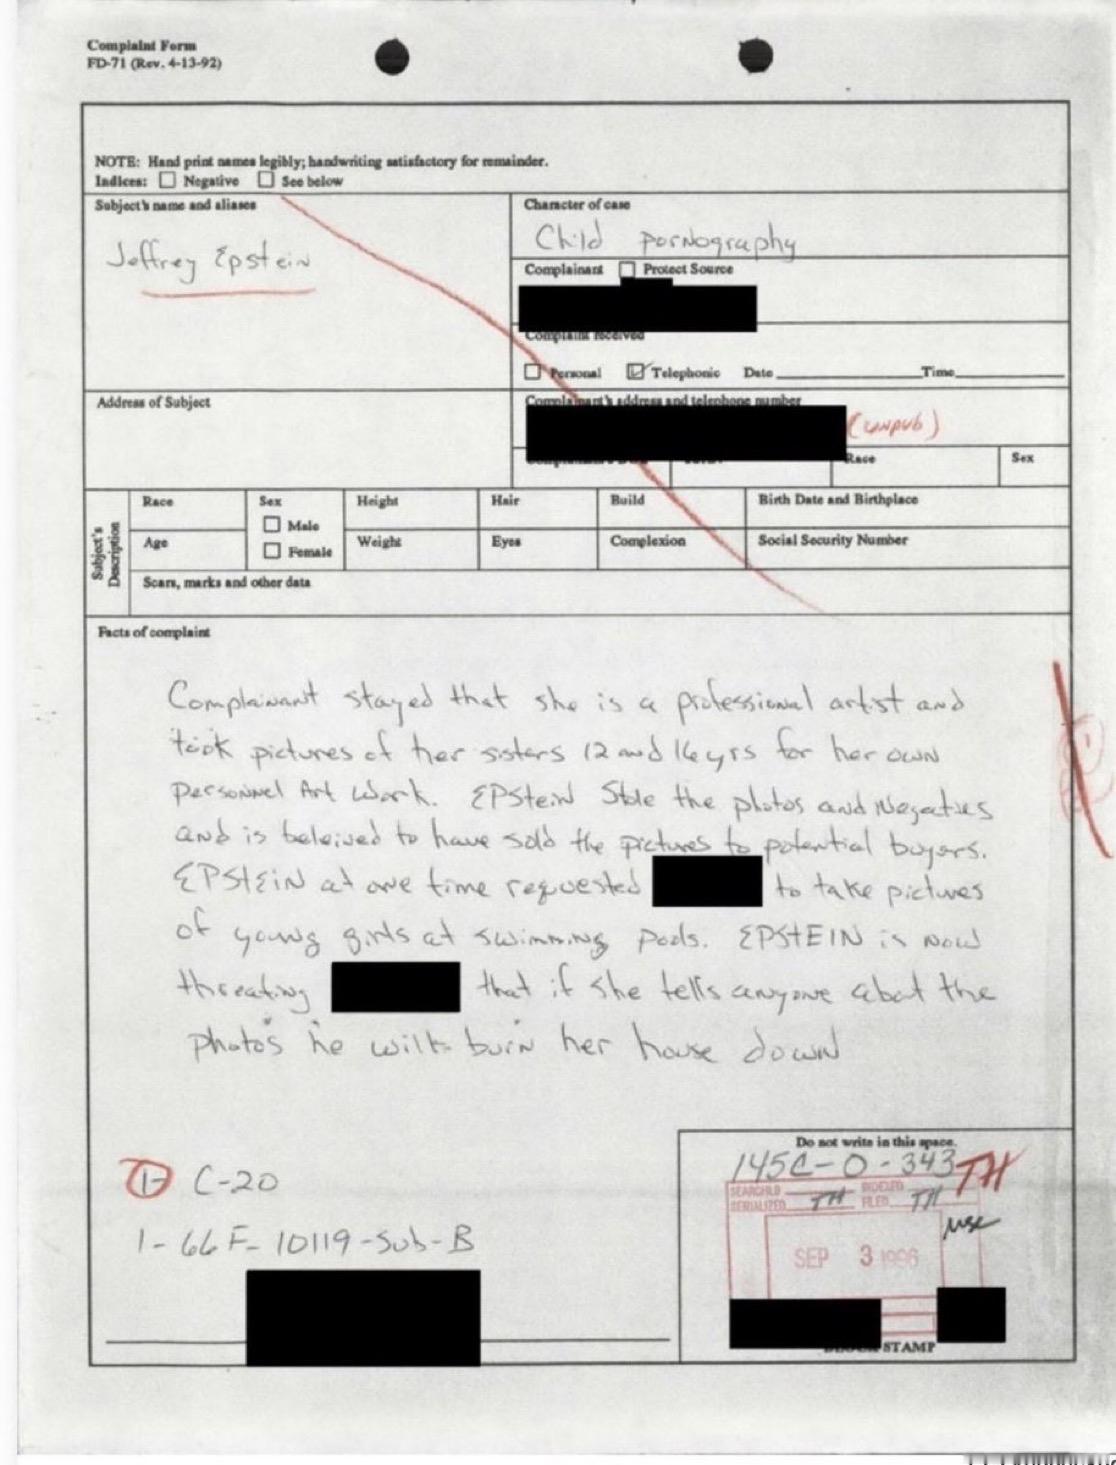 Complaint Form
FD-71 (Rev. 4-13-92)
NOTE: Hand print names legibly; handwriting satisfactory for remainder.
Indices: ☐ Negative ☐ See below
Subject's name and aliases
Jeffrey Epstein
Character of case
Child pornography
Complainant ☐ Protect Source
Complaint received
☐ Personal ☑ Telephonic Date Time
Address of Subject
Complainant's address and telephone number
(unpub)
Race Sex
Subject's Description
Race Sex Height Hair Build Birth Date and Birthplace
☐ Male
Age ☐ Female Weight Eyes Complexion Social Security Number
Scars, marks and other data
Facts of complaint
Complainant stayed that she is a professional artist and
took pictures of her sisters 12 and 16 yrs for her own
personnel Art Work. EPStein Stole the photos and Negatives
and is beleived to have sold the pictures to potential buyers.
EPStein at one time requested to take pictures
of young girls at swimming pools. EPSTEIN is now
threating that if she tells anyone abot the
photos he will burn her house down
1- C-20
1-66F-10119-Sub-B
Do not write in this space.
145C-0-343 TH
SEARCHED INDEXED
SERIALIZED TH FILED TH
SEP 3 1996
STAMP